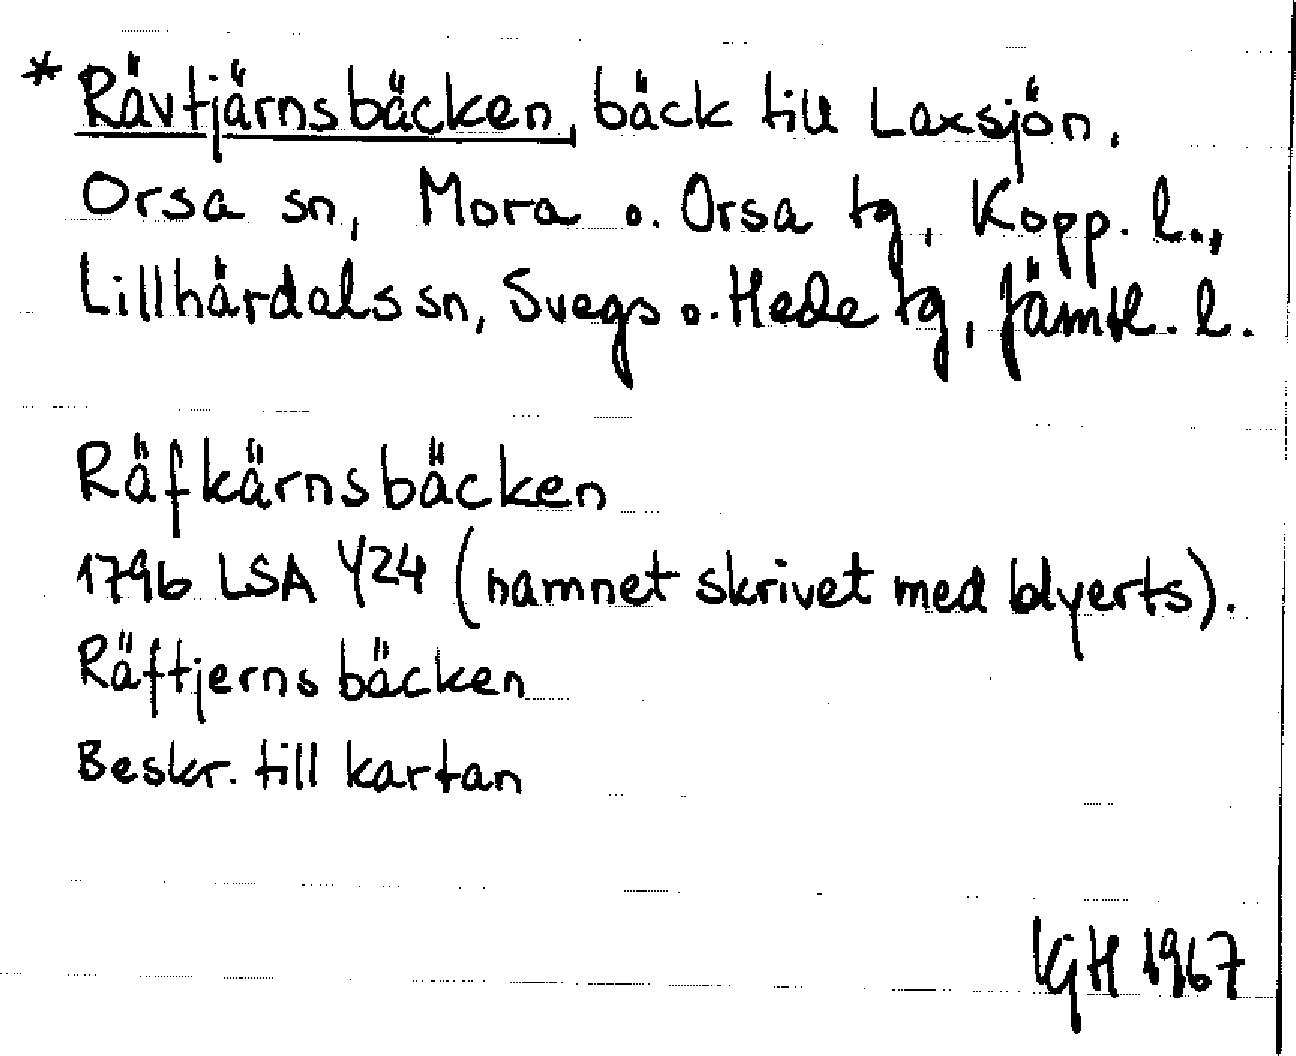 * Rävtjärnsbäcken, bäck till Laxsjön.
Orsa sn, Mora o. Orsa tg, Kopp. l.,
Lillhärdals sn, Svegs o. Hede tg, Jämtl. l.
Räfkärnsbäcken
1796 LSA Y24 (namnet skrivet med blyerts).
Räftjernsbäcken
Beskr. till kartan
IGH 1967